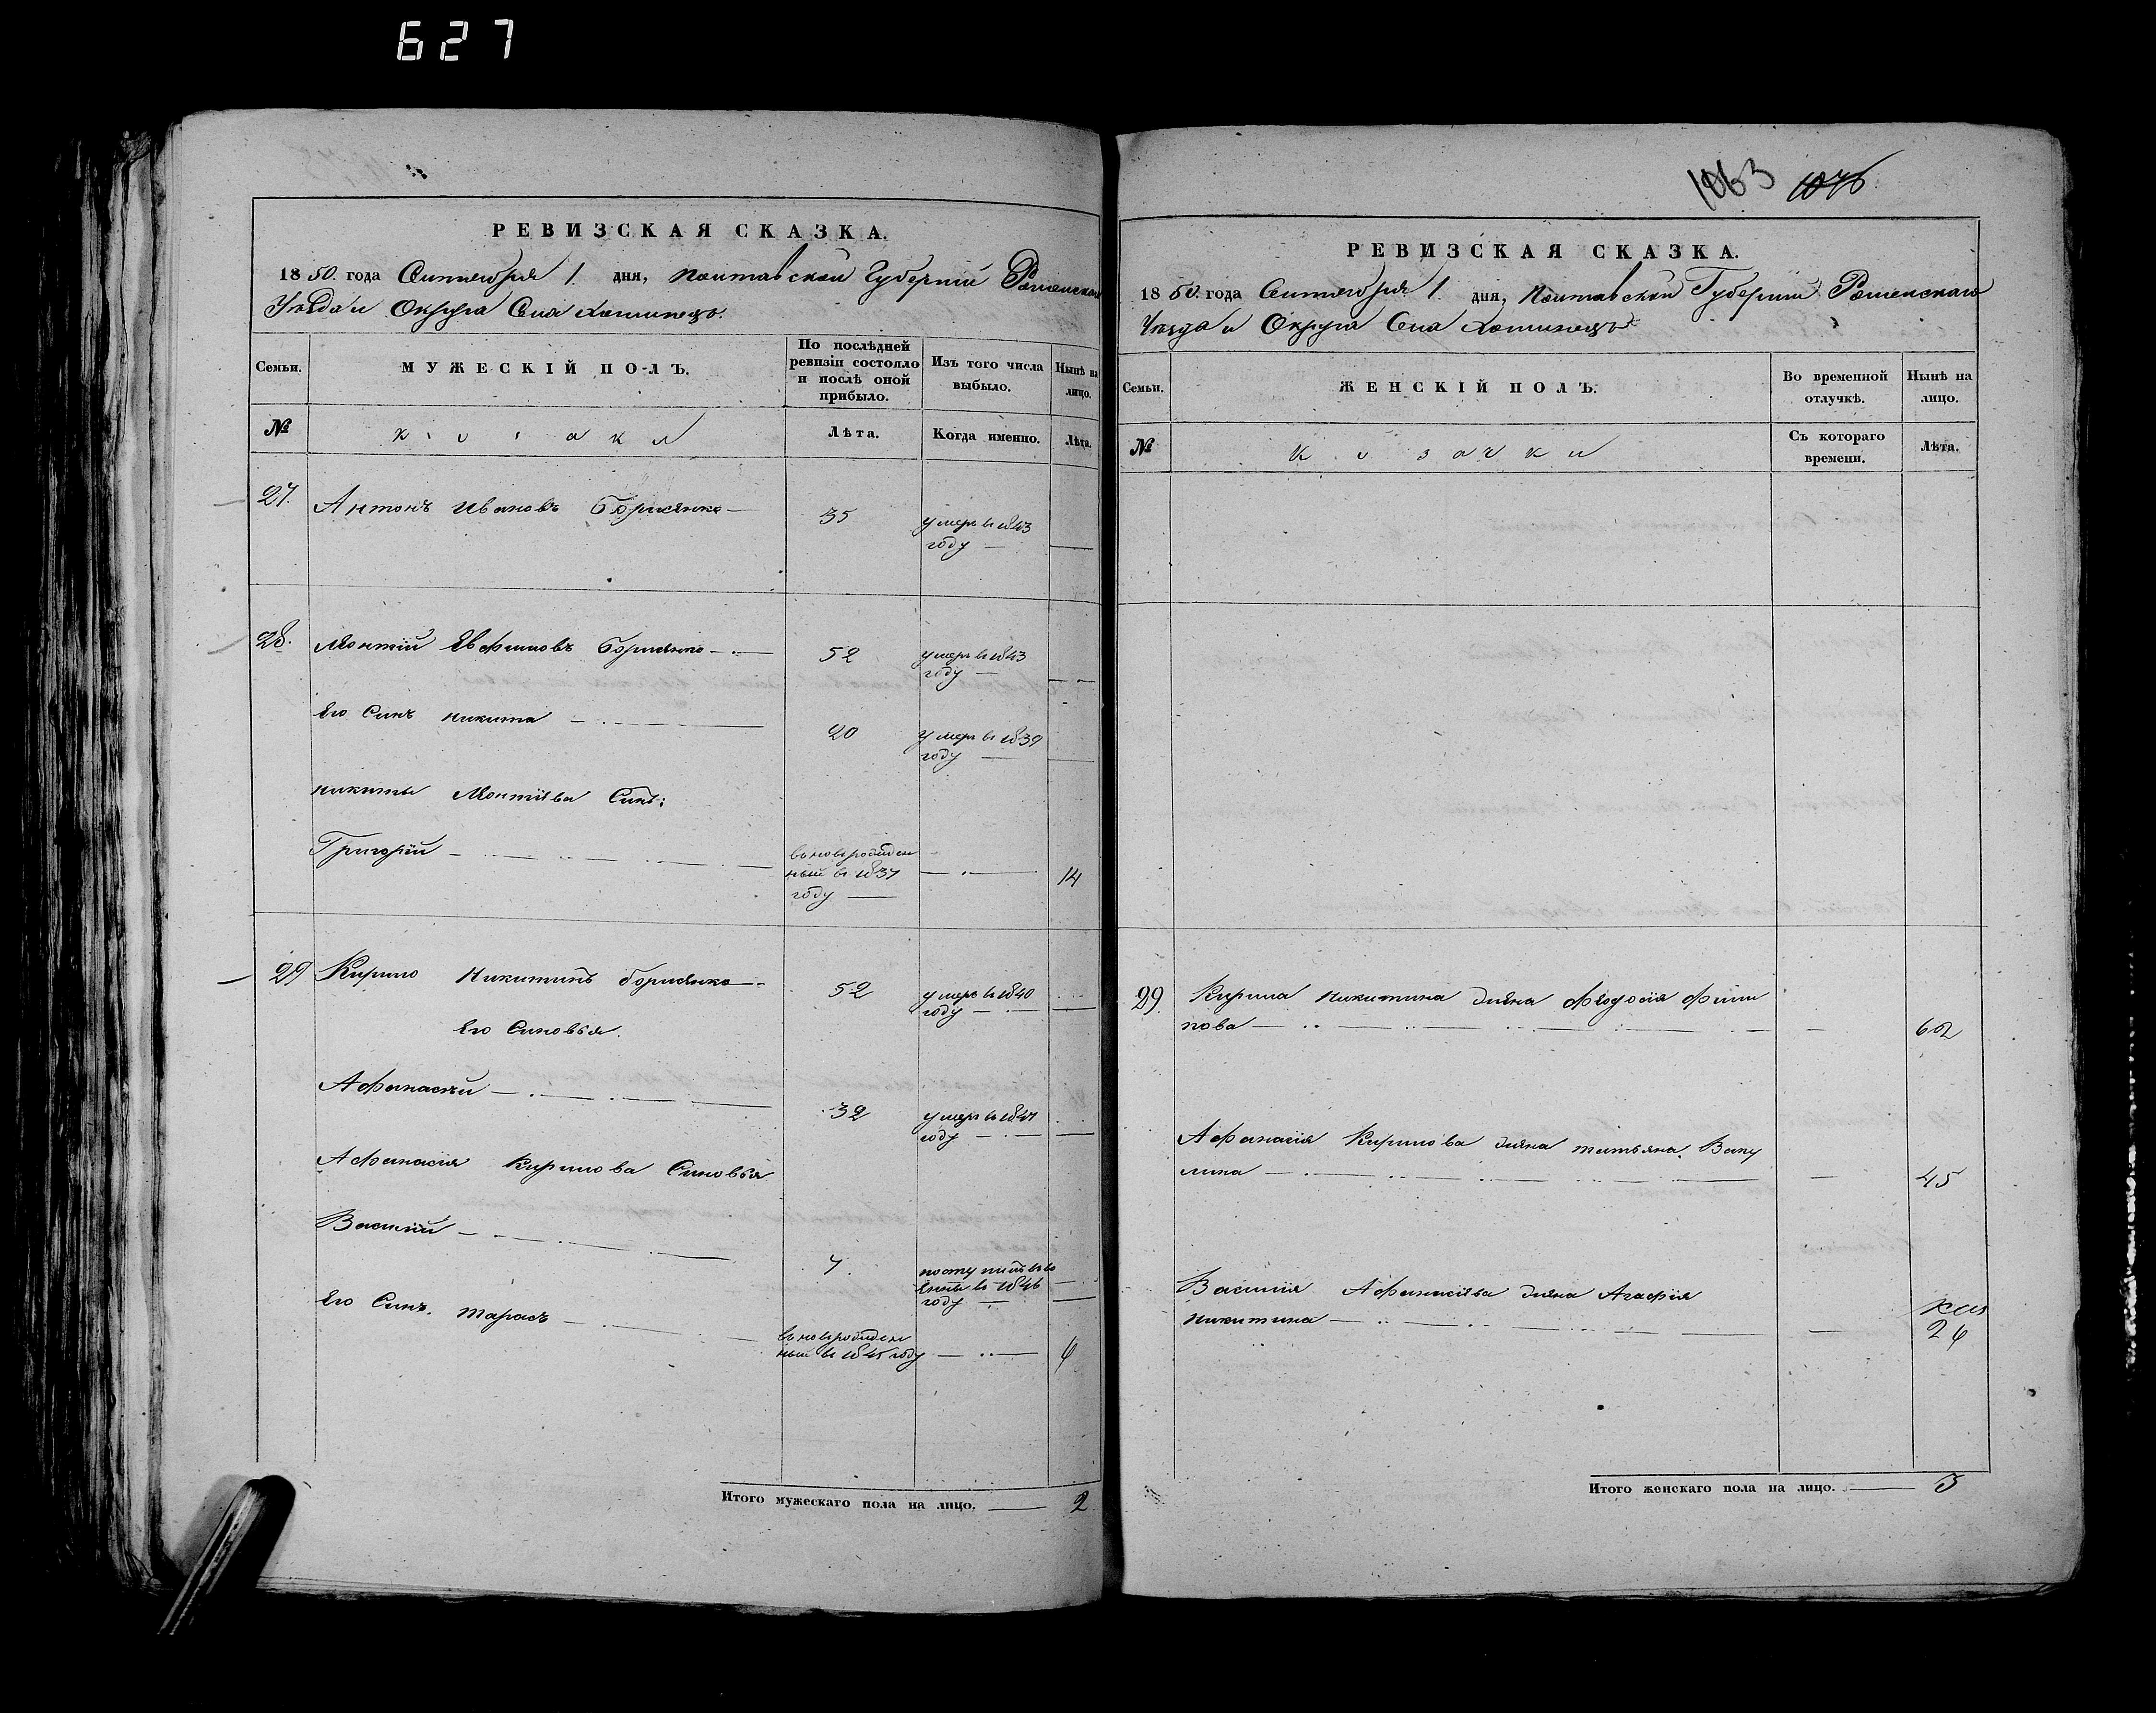 627
РЕВИЗСКАЯ СКАЗКА.
1850. года Сентября 1. дня, Полтавской Губерніи Роменскаго
Уѣзда и Округа Села
Семьи.
МУЖЕСКІЙ ПОЛЪ.
По послѣдней ревизіи состояло и послѣ оной прибыло.
Изъ того числа выбыло.
Нынѣ на лицо.
№
козаки
Лѣта.
Когда именно.
Лѣта.
27. Антонъ Ивановъ 35 умеръ въ 1843
году —
28. Леонтій Евфимовъ 52 умеръ въ 1843
году —
Его Синъ Никита 20 умеръ въ 1839
году —
Никиты Леонтіева Синъ:
Григорій вновьрожден
ный въ 1837 14
году —
29 Кирило Никитинъ 52 умеръ въ 1840
году —
Его Синовья.
Афанасій 32 умеръ въ 1847
году —
Афанасія Кирилова Синовья
Василій 7. въ 1846
году —
Его Синъ. Тарасъ вновьрожден
ный въ 1845 году
Итого мужескаго пола на лицо. — 2
1063 1076
РЕВИЗСКАЯ СКАЗКА.
1850. года Сентября 1. дня, Полтавской Губерніи Роменскаго
Уезда и Округа Села
Семьи.
ЖЕНСКІЙ ПОЛЪ.
Во временной отлучкѣ.
Нынѣ на лицо.
№
козачки
Съ котораго времени.
Лѣта.
29. Кирила Никитина жена Феодосія Фили
пова — 62
Афанасія Кирилова жена татьяна. Ваку
лина — 45
Василія Афанасіева жена Агафія
Никитина —
Итого женскаго пола на лицо. — 3